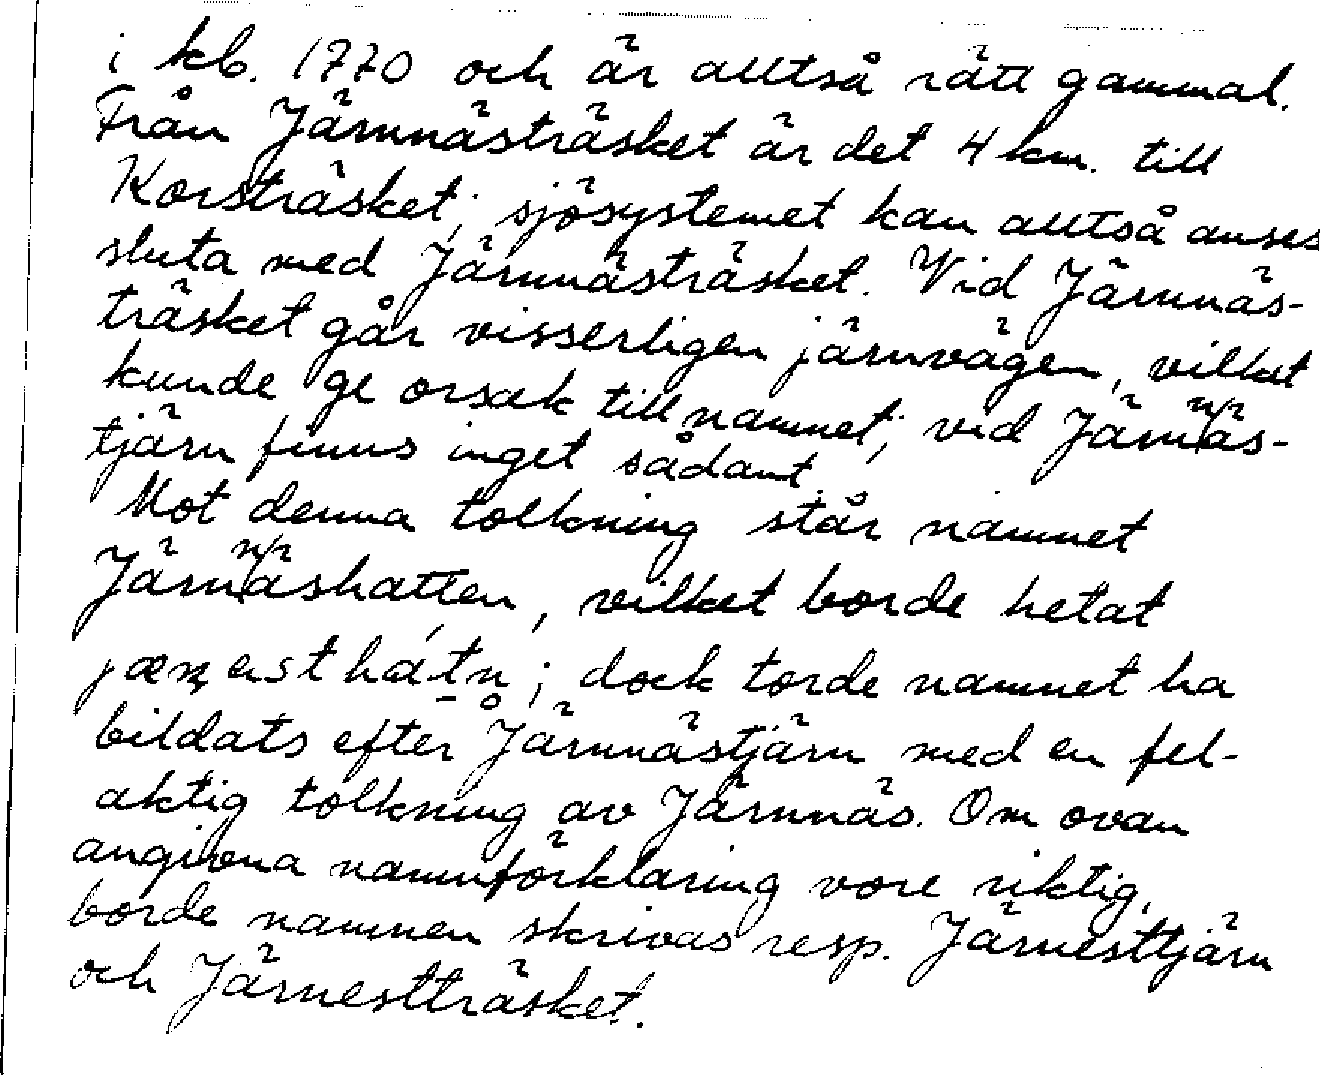 i kb. 1770 och är alltså rätt gammal.
Från Järnnästräsket är det 4 km. till
Korsträsket; sjösystemet kan alltså anses
sluta med Järnnästräsket. Vid Järnnäs-
träsket går visserligen järnvägen, vilket
kunde ge orsak till namnet; vid Järnnäs-
tjärn finns inget sådant.
Mot denna tolkning står namnet
Järnnäshatten, vilket borde hetat
; dock torde namnet ha
bildats efter Järnnästjärn med en fel-
aktig tolkning av Järnnäs. Om ovan
angivna namnförklaring vore riktig,
borde namnen skrivas resp. Järnesttjärn
och Järnestträsket.